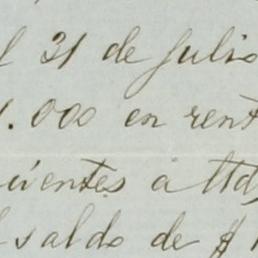 l 31 de Julio
.000 en rent
uentes á Uds
l saldo de $